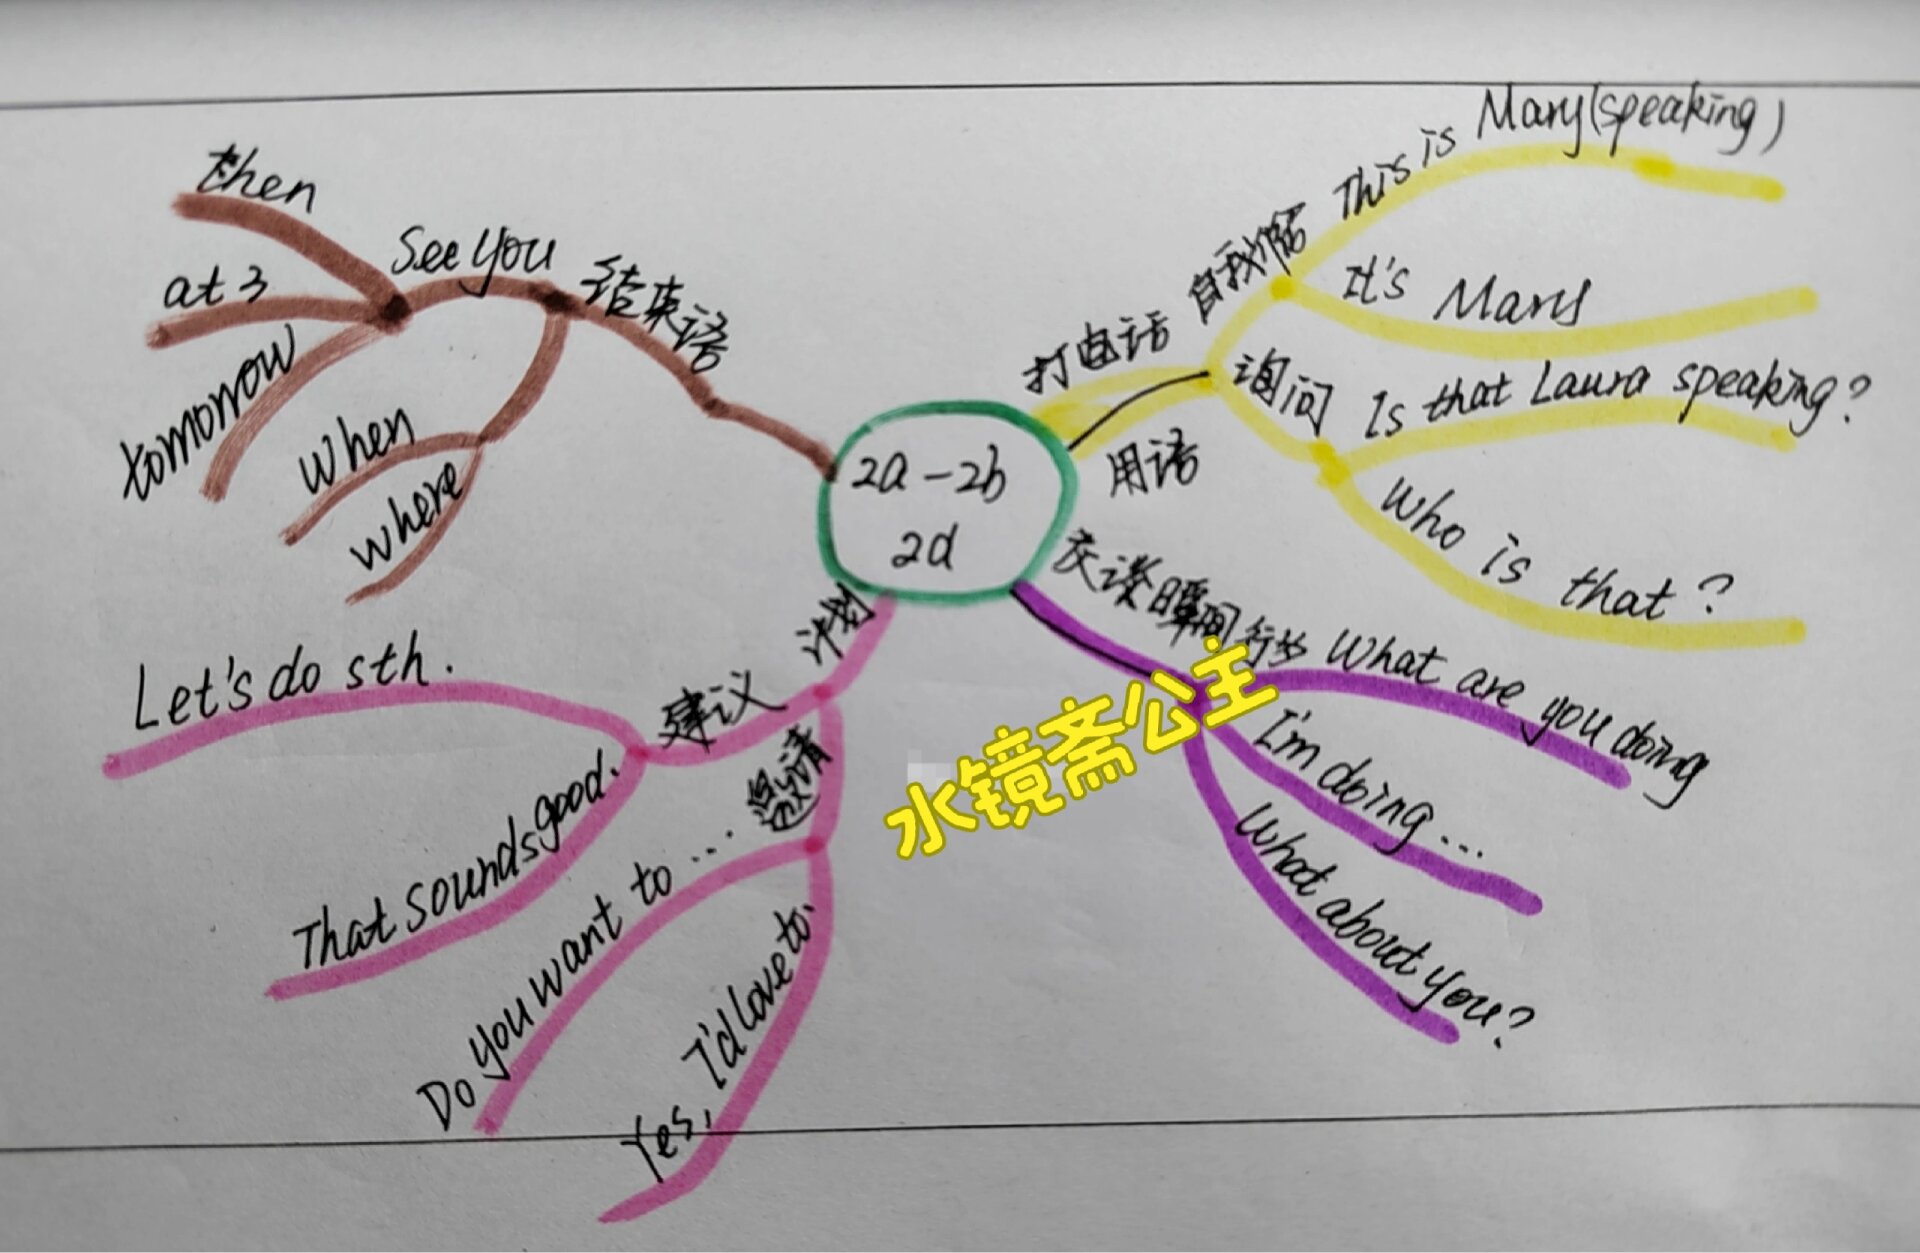 2a-2b
2d
打电话
用语
自我介绍
This is Mary(speaking)
It's Mary
询问
Is that Laura speaking?
Who is that?
交谈瞬间行为
What are you doing
I'm doing...
What about you?
计划
建议
Let's do sth.
That sounds good.
邀请
Do you want to...
Yes, I'd love to.
结束语
See you
then
at 3
tomorrow
When
where
水镜斋公主